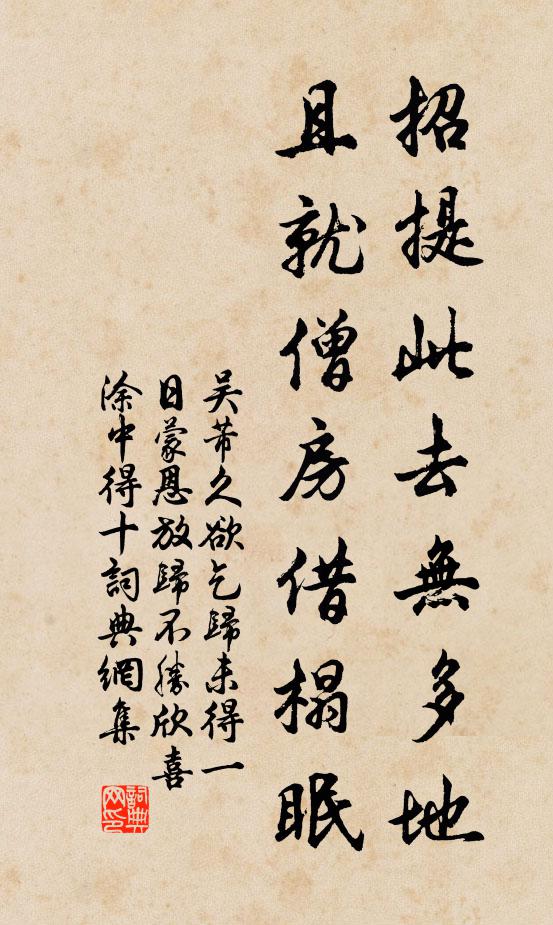 招提此去無多地
且就僧房借榻眠
吴芾久欲乞歸未得一
日蒙恩放歸不勝欣喜
涂中得十詞典網集
詞典
网印